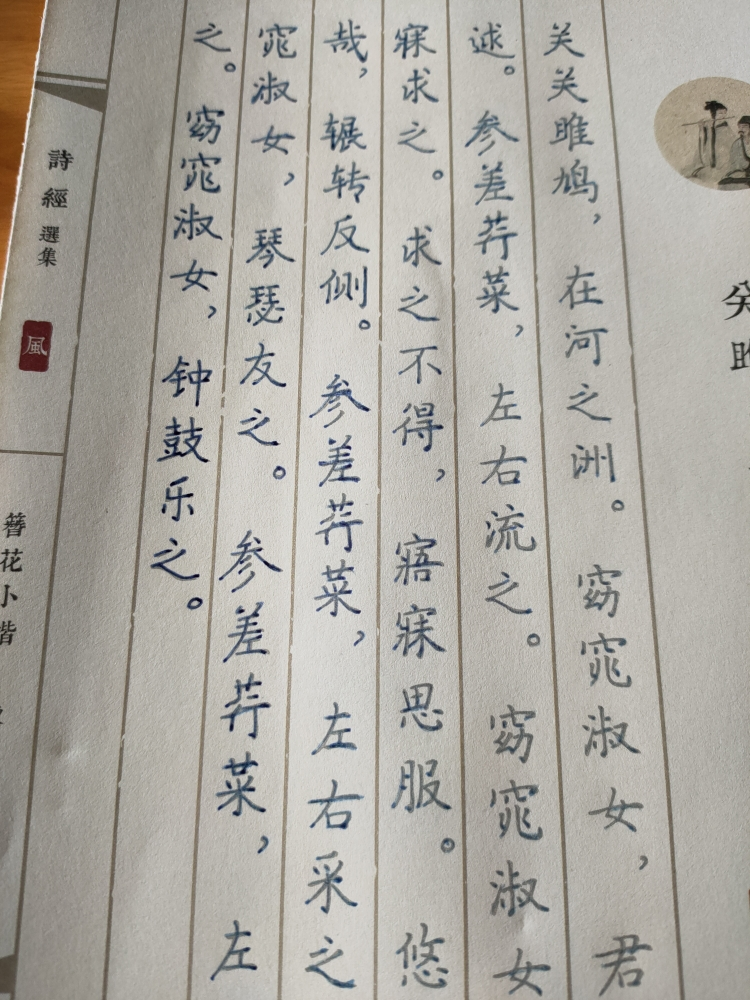 关关雎鸠，在河之洲。窈窕淑女，君
逑。参差荇菜，左右流之。窈窕淑女
寐求之。求之不得，寤寐思服。悠
哉，辗转反侧。参差荇菜，左右采之
窕淑女，琴瑟友之。参差荇菜，左
之。窈窕淑女，钟鼓乐之。
詩經選集
風
簪花小楷